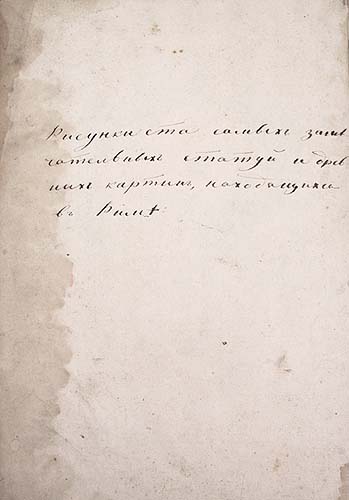 Рисунки ста самыхъ заме
чательныхъ статуй и древ
нихъ картинъ, находящихся
въ Римѣ